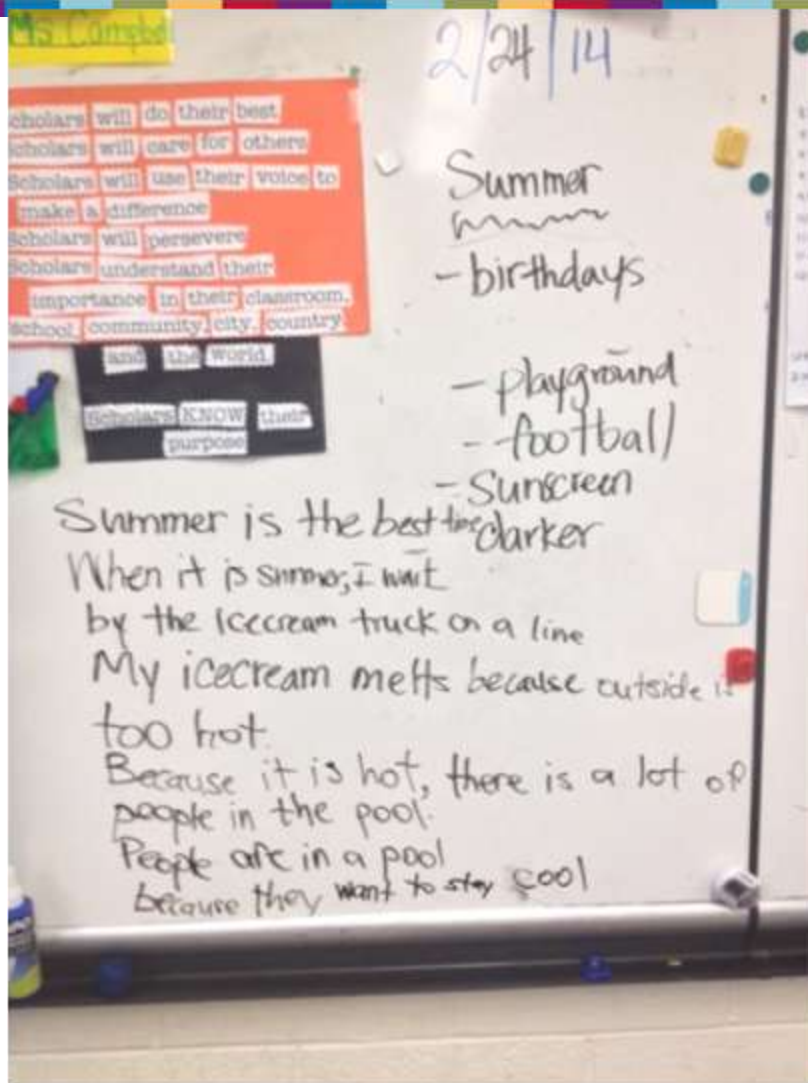 Ms Campbell
2/24/14
Scholars will do their best
Scholars will care for others
Scholars will use their voice to
make a difference
Scholars will persevere
Scholars understand their
importance in their classroom,
school, community, city, country
and the world.
Scholars KNOW their
purpose
Summer
- birthdays
- playground
- football
- Sunscreen
darker
Summer is the best time
When it is summer, I wait
by the Icecream truck on a line
My icecream melts because outside is
too hot.
Because it is hot, there is a lot of
people in the pool.
People are in a pool
because they want to stay cool